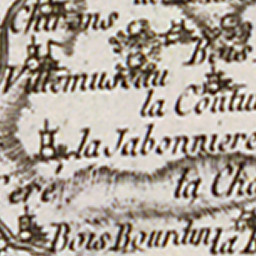 Charans
Bois
Villemussau
la Coutu
la Jabonniere
Ceré
la Cha
Bois Bourdin
la